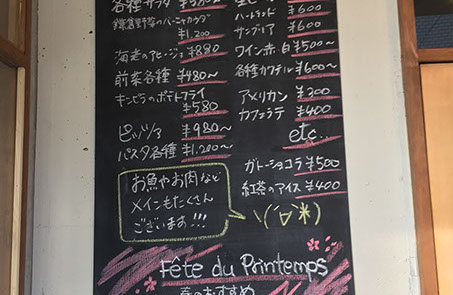 各種サラダ
鎌倉野菜のバーニャカウダ
¥1,200
海老のアヒージョ ¥880
前菜各種 ¥480〜
きたあかりのポテトフライ
¥580
ピッツァ ¥980〜
パスタ各種 ¥1,200〜
お魚やお肉など
メインもたくさん
ございます!!!
¥600
サングリア ¥600
ワイン 赤 白 ¥500〜
各種カクテル ¥600〜
アメリカン ¥300
カフェラテ ¥400
etc...
ガトーショコラ ¥500
紅茶のアイス ¥400
Fête du Printemps
春のおすすめ